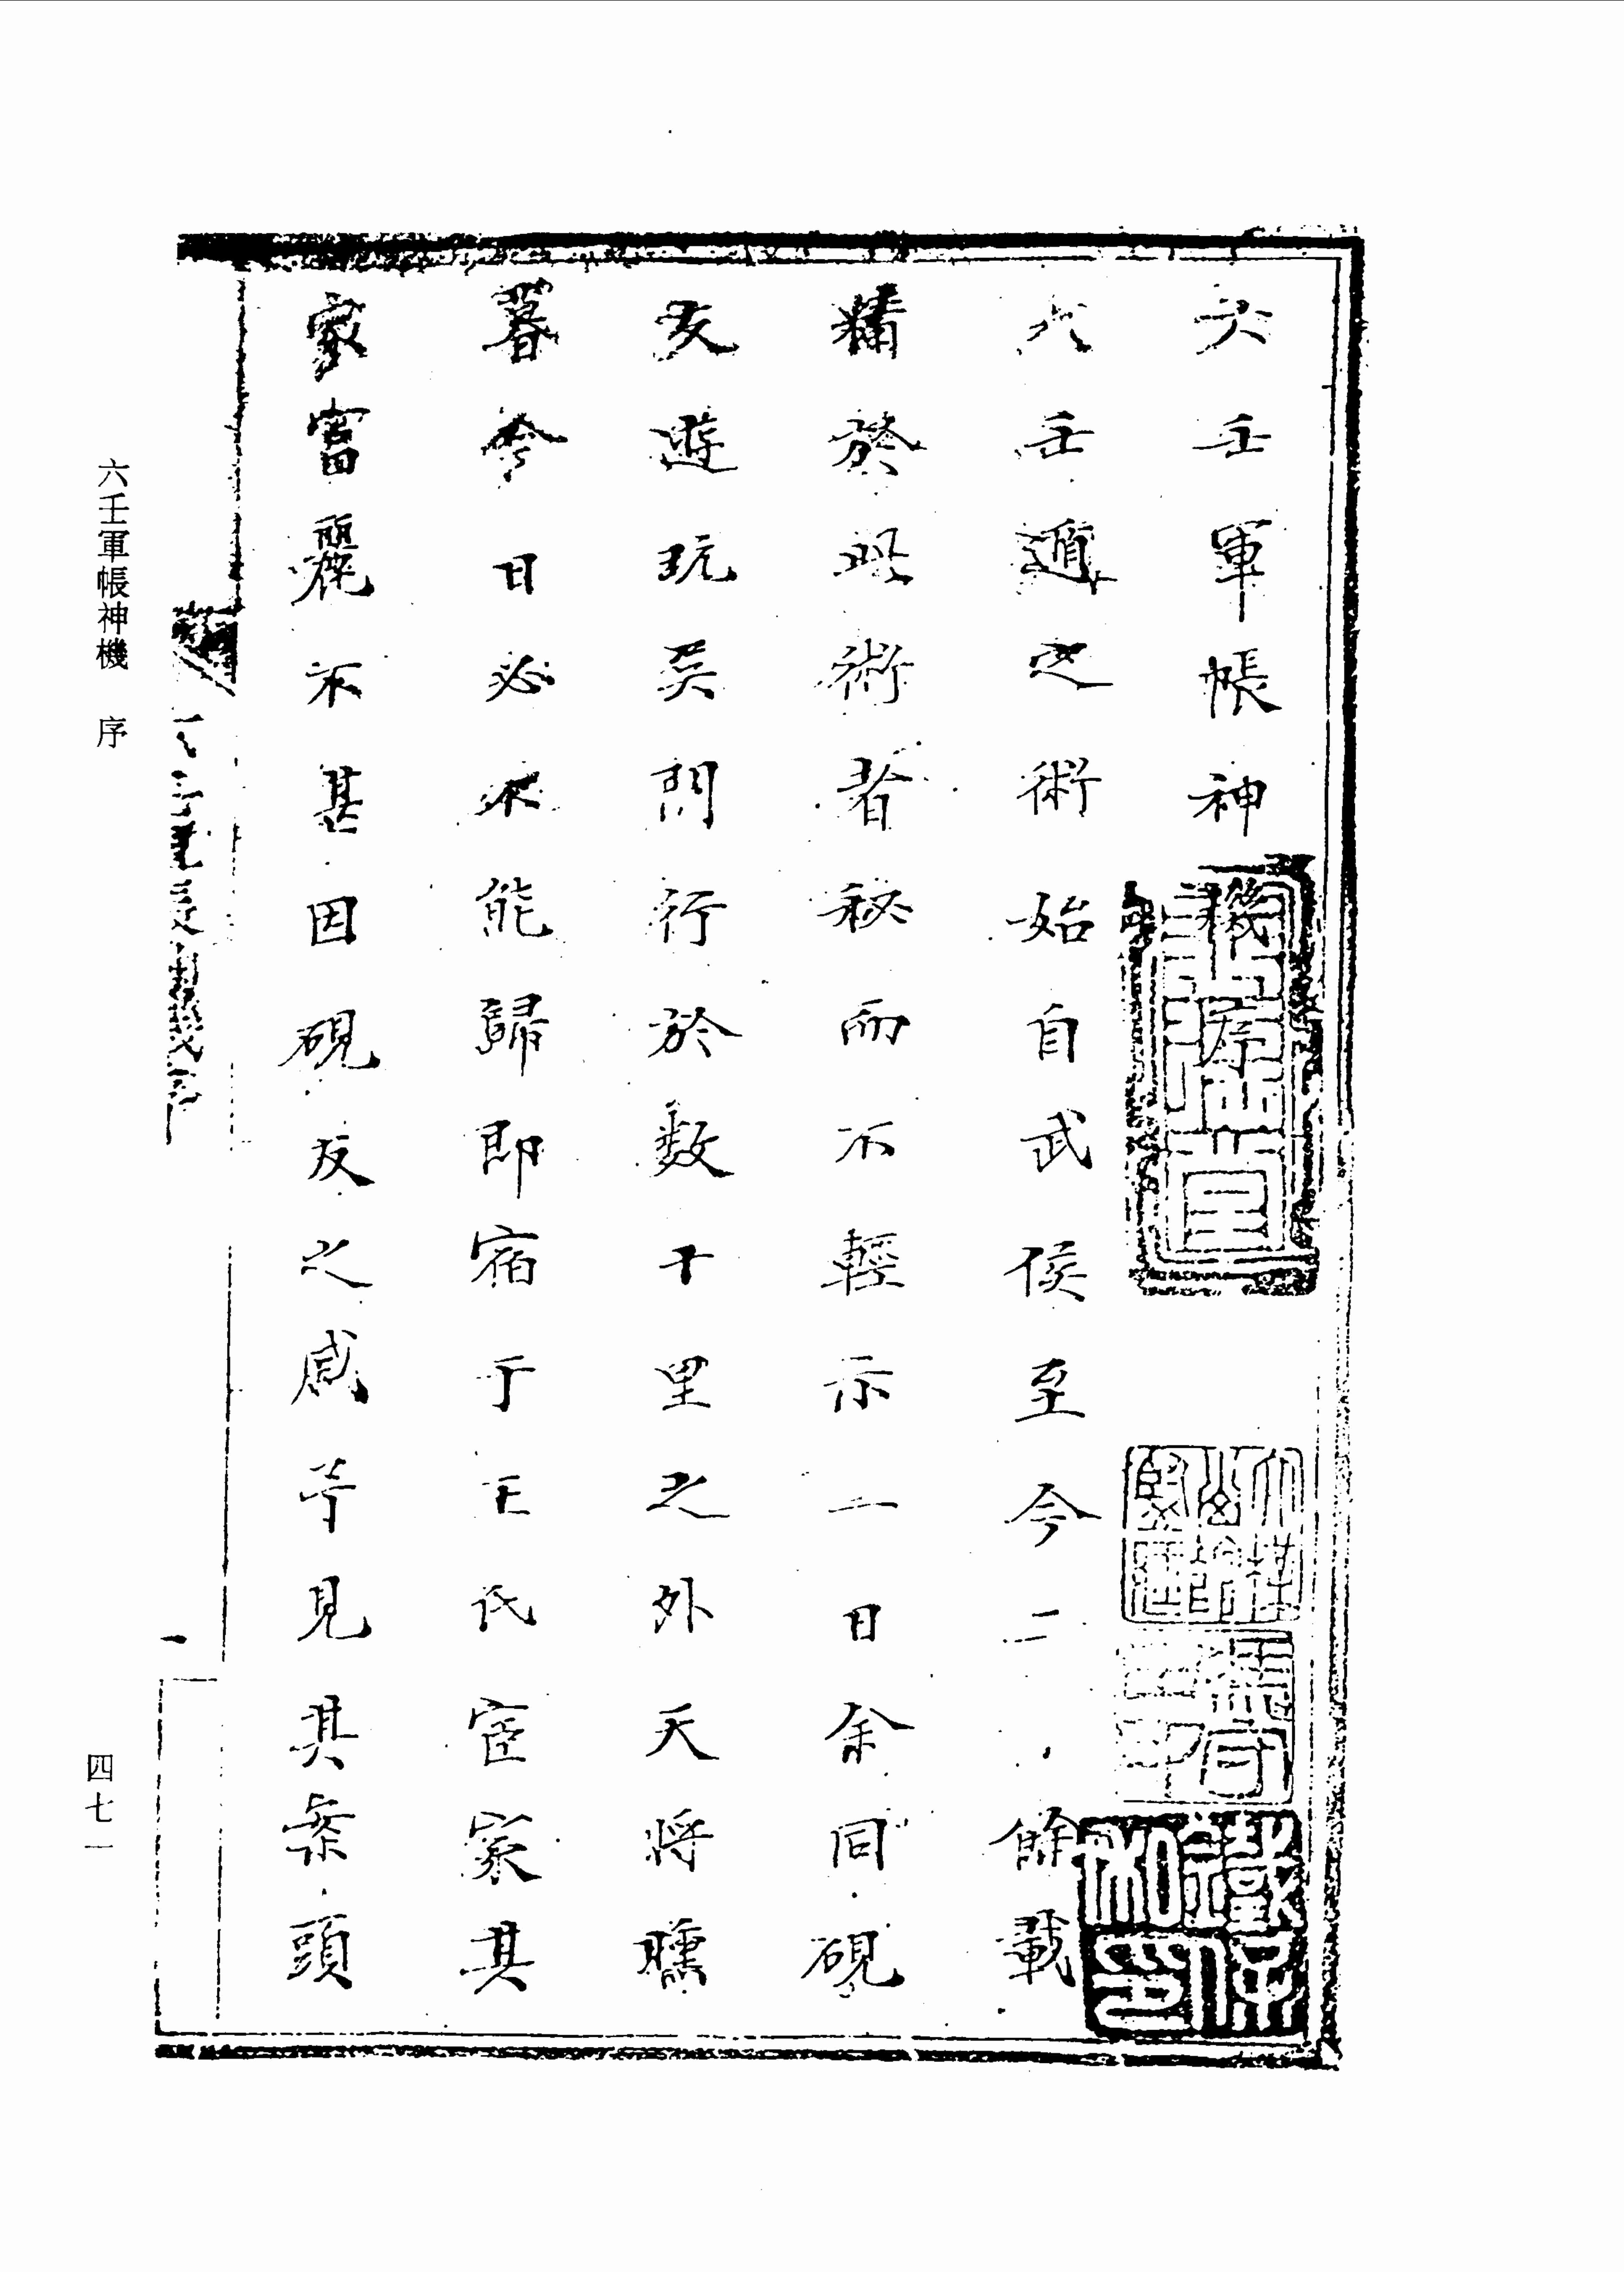 六壬軍帳神機序
六壬遁之術始自武侯至今二餘載
精於此術者秘而不輕示一日余同硯
友遊玩吳門行於数十里之外天將曛
暮今日必不能歸即宿于王氏宦家其
家富麗不甚因硯友之戚予見其案頭
六壬軍帳神機 序
一
四七一